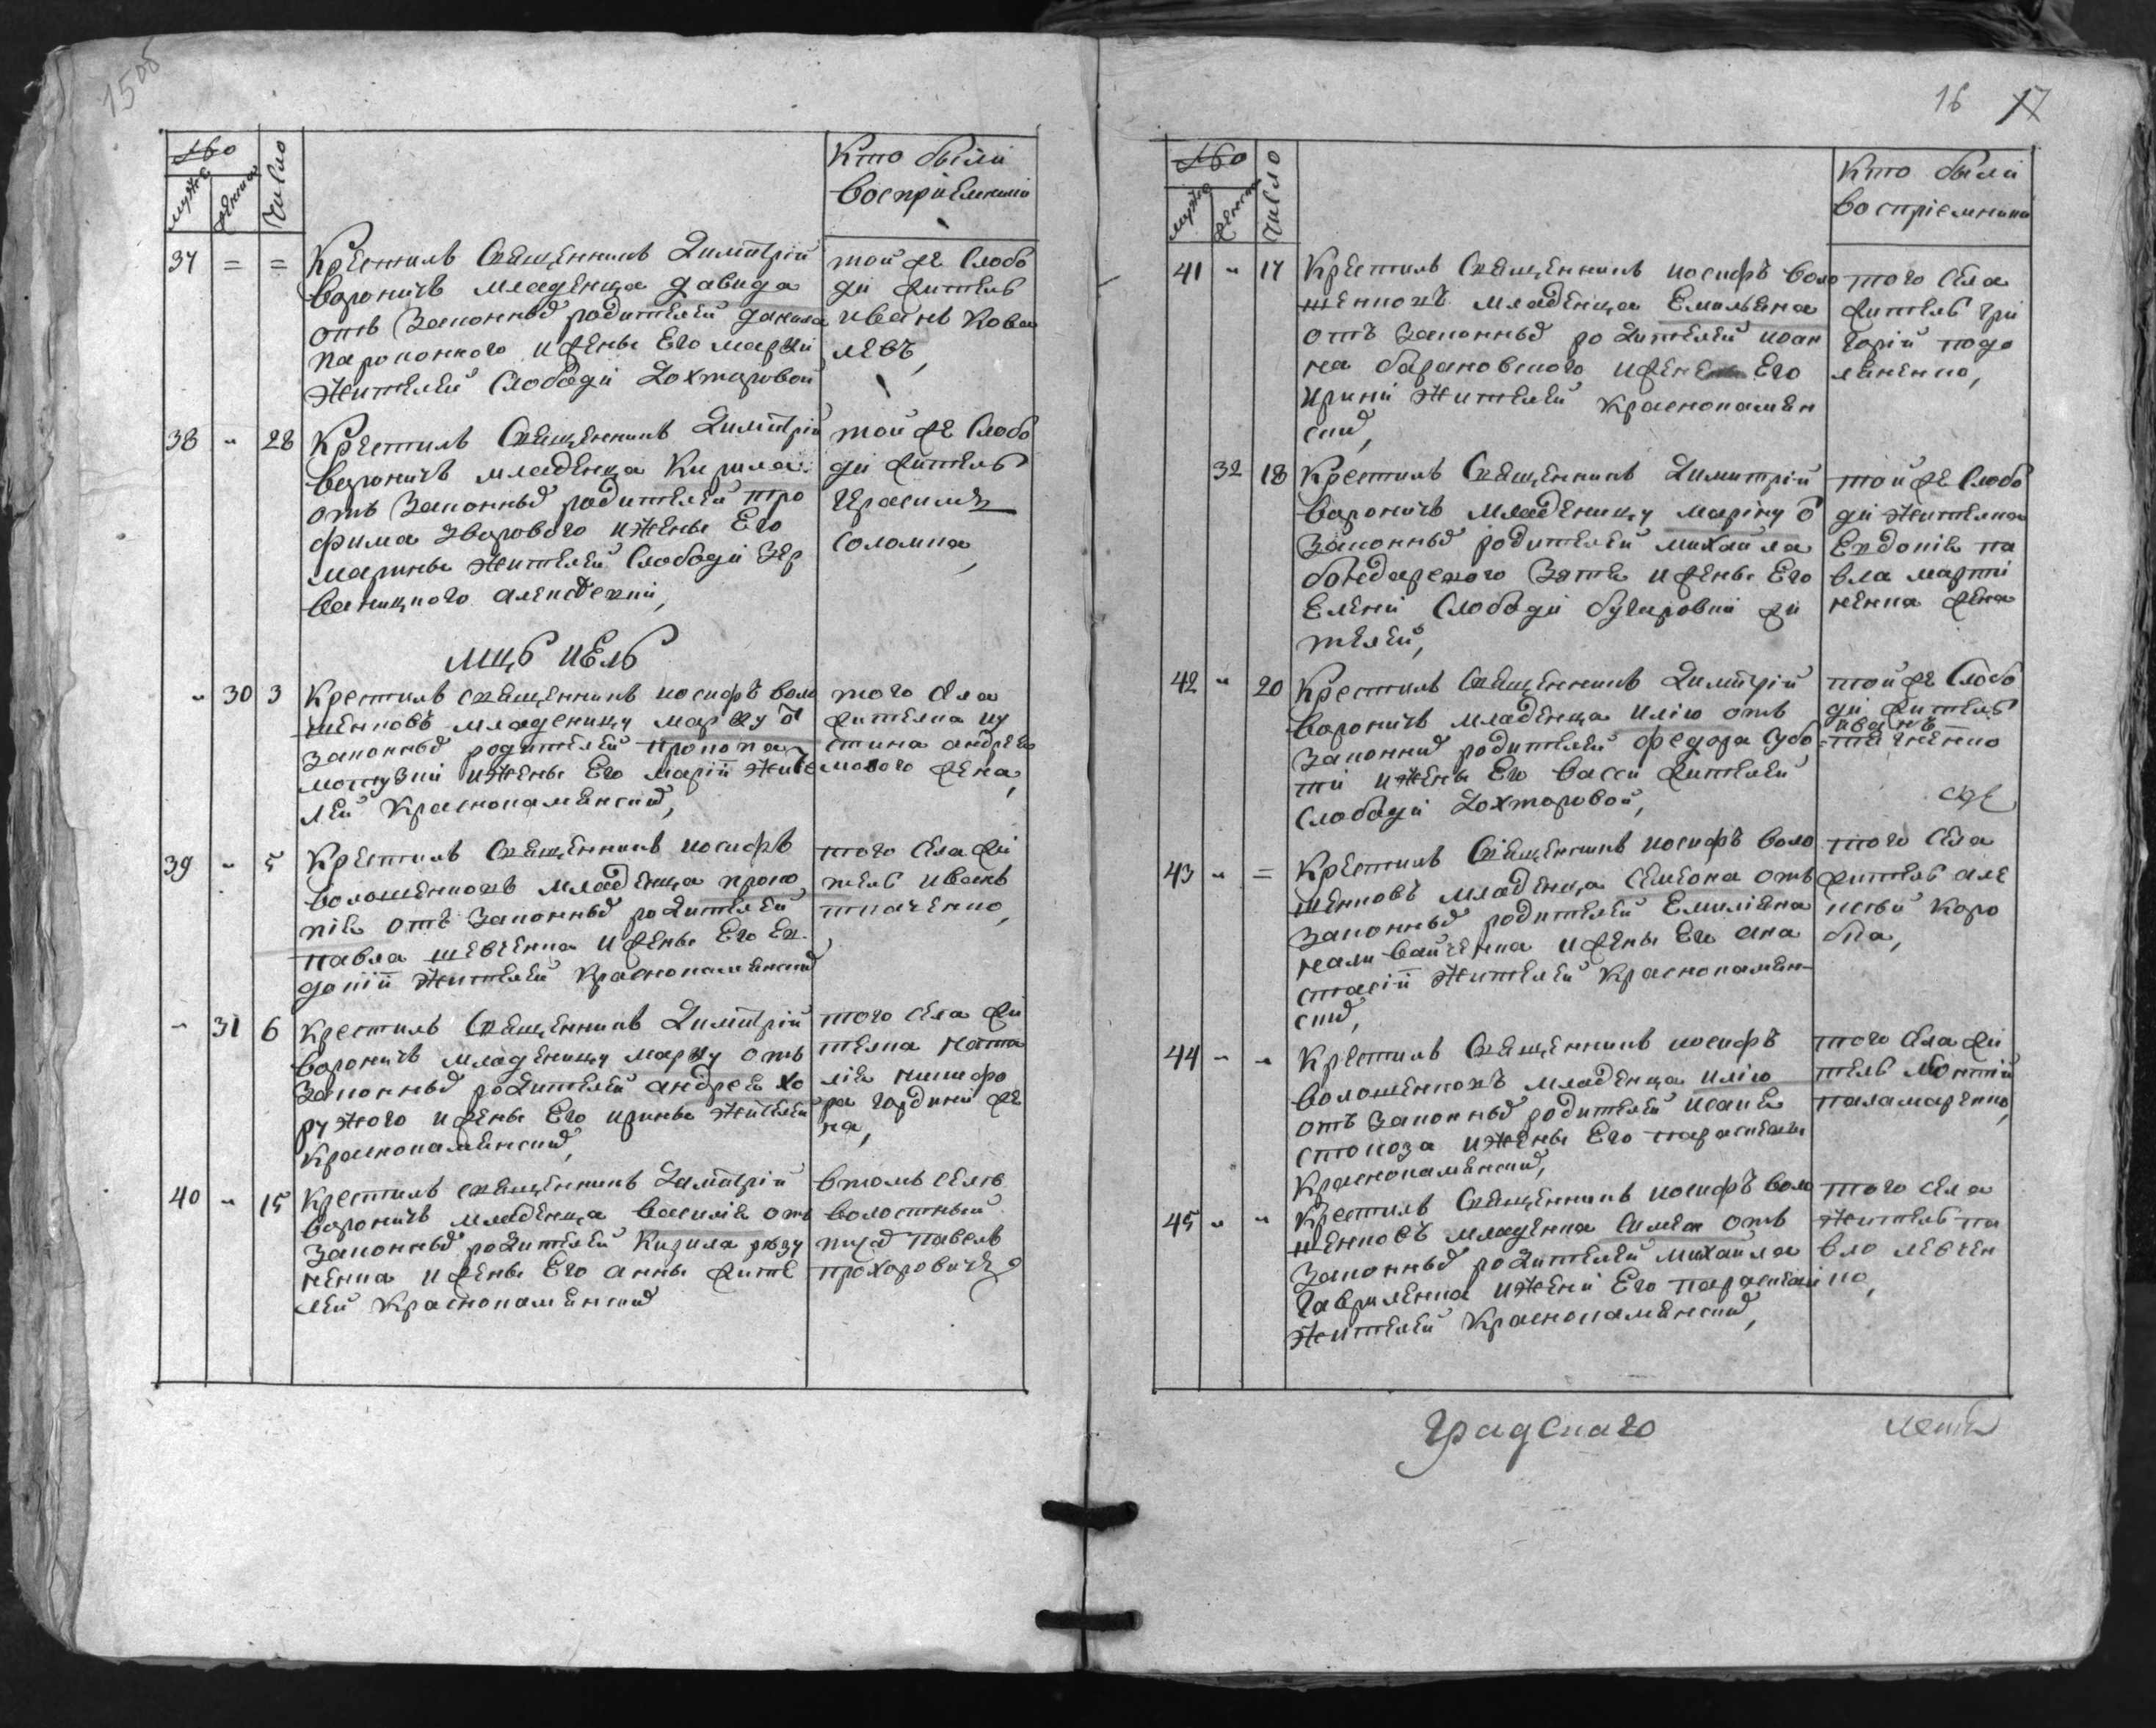 15об
№
мужс женск
Число
Кто были
восприемники
37 = =
Крестилъ Священникъ Димитрій
вороничъ младенца давида
отъ Законныхъ родителей данила
и жены Его марѳи
Жителей Слободи Дохтаровой
той же Слобо
ди житель
иванъ Кова
левъ,
38 " 28
Крестилъ Священникъ Димитрій
вороничъ младенца Кирила
отъ Законныхъ родителей тро
фима и жены Его
марины жителей Слободи
той же Слобо
ди житель
Герасимъ
Соломка,
мцъ июль
" 30 3
Крестилъ священникъ иосифъ воло
шенковъ младеницу марѳу от
законныхъ родителей прокопа
и жены Его маріи жите
лей Краснокаменскихъ,
того села
жителка иу
стина андрея
жена,
39 " 5
Крестилъ Священникъ иосифъ
волошенковъ младенца проко
пія отъ Законныхъ родителей
павла шевченка и жены Его Ев
докіи жителей Краснокаменскихъ
того села жи
тель иванъ
ткаченко,
" 31 6
Крестилъ Священникъ Димитрій
вороничъ младеницу марѳу отъ
Законныхъ родителей андрея хо
ружого и жены Его ирины жителей
Краснокаменскихъ,
того села жи
телка ната
лія никифо
ра гордини же
на,
40 " 15
Крестилъ священникъ Димитрій
вороничъ младенца василія отъ
Законныхъ родителей Кирила
ненка и жены Его анны жите
лей Краснокаменскихъ
втомъ селѣ
волостный
павелъ
прохоровичъ
16 17
№
мужс женск
Число
Кто были
восприемники
41 " 17
Крестилъ Священникъ иосифъ воло
шенковъ младенца Емильяна
отъ Законныхъ родителей иоан
на барановского и жены Его
ирини жителей краснокамен
скихъ,
того села
житель гри
горій подо
ляненко,
32 18
Крестилъ Священникъ Димитрій
вороничъ младеницу марину от
Законныхъ родителей михайла
бондарского Зятя и жены Его
Елени Слободи жи
телей,
той же Слобо
ди жителка
Евдокія па
вла марти
ненка жена
42 " 20
Крестилъ Священникъ Димитрій
вороничъ младенца илію отъ
Законнихъ родителей федора Субо
ти и жены Его васси жителей
Слободи Дохтаровой,
той же Слобо
ди житель
иванъ
43 " =
Крестилъ Священникъ иосифъ воло
шенковъ младенца Семеона отъ
Законныхъ родителей Емиліяна
наливайченка и жены Его ана
стасіи жителей Краснокамен
скихъ,
того села
житель але
ксѣй коро
бка,
44 " "
Крестилъ Священникъ иосифъ
волошенковъ младенца илію
отъ Законныхъ родителей исаія
стокоза и жены Его параскевы
Краснокаменскихъ,
того села жи
тель
паламаренко,
45 " "
Крестилъ Священникъ иосифъ воло
шенковъ младенца Симеон отъ
Законныхъ родителей михайла
Гавриленка и жени Его параскевіи
жителей Краснокаменскихъ,
того села
житель па
вло левчен
ко,
Градскаго